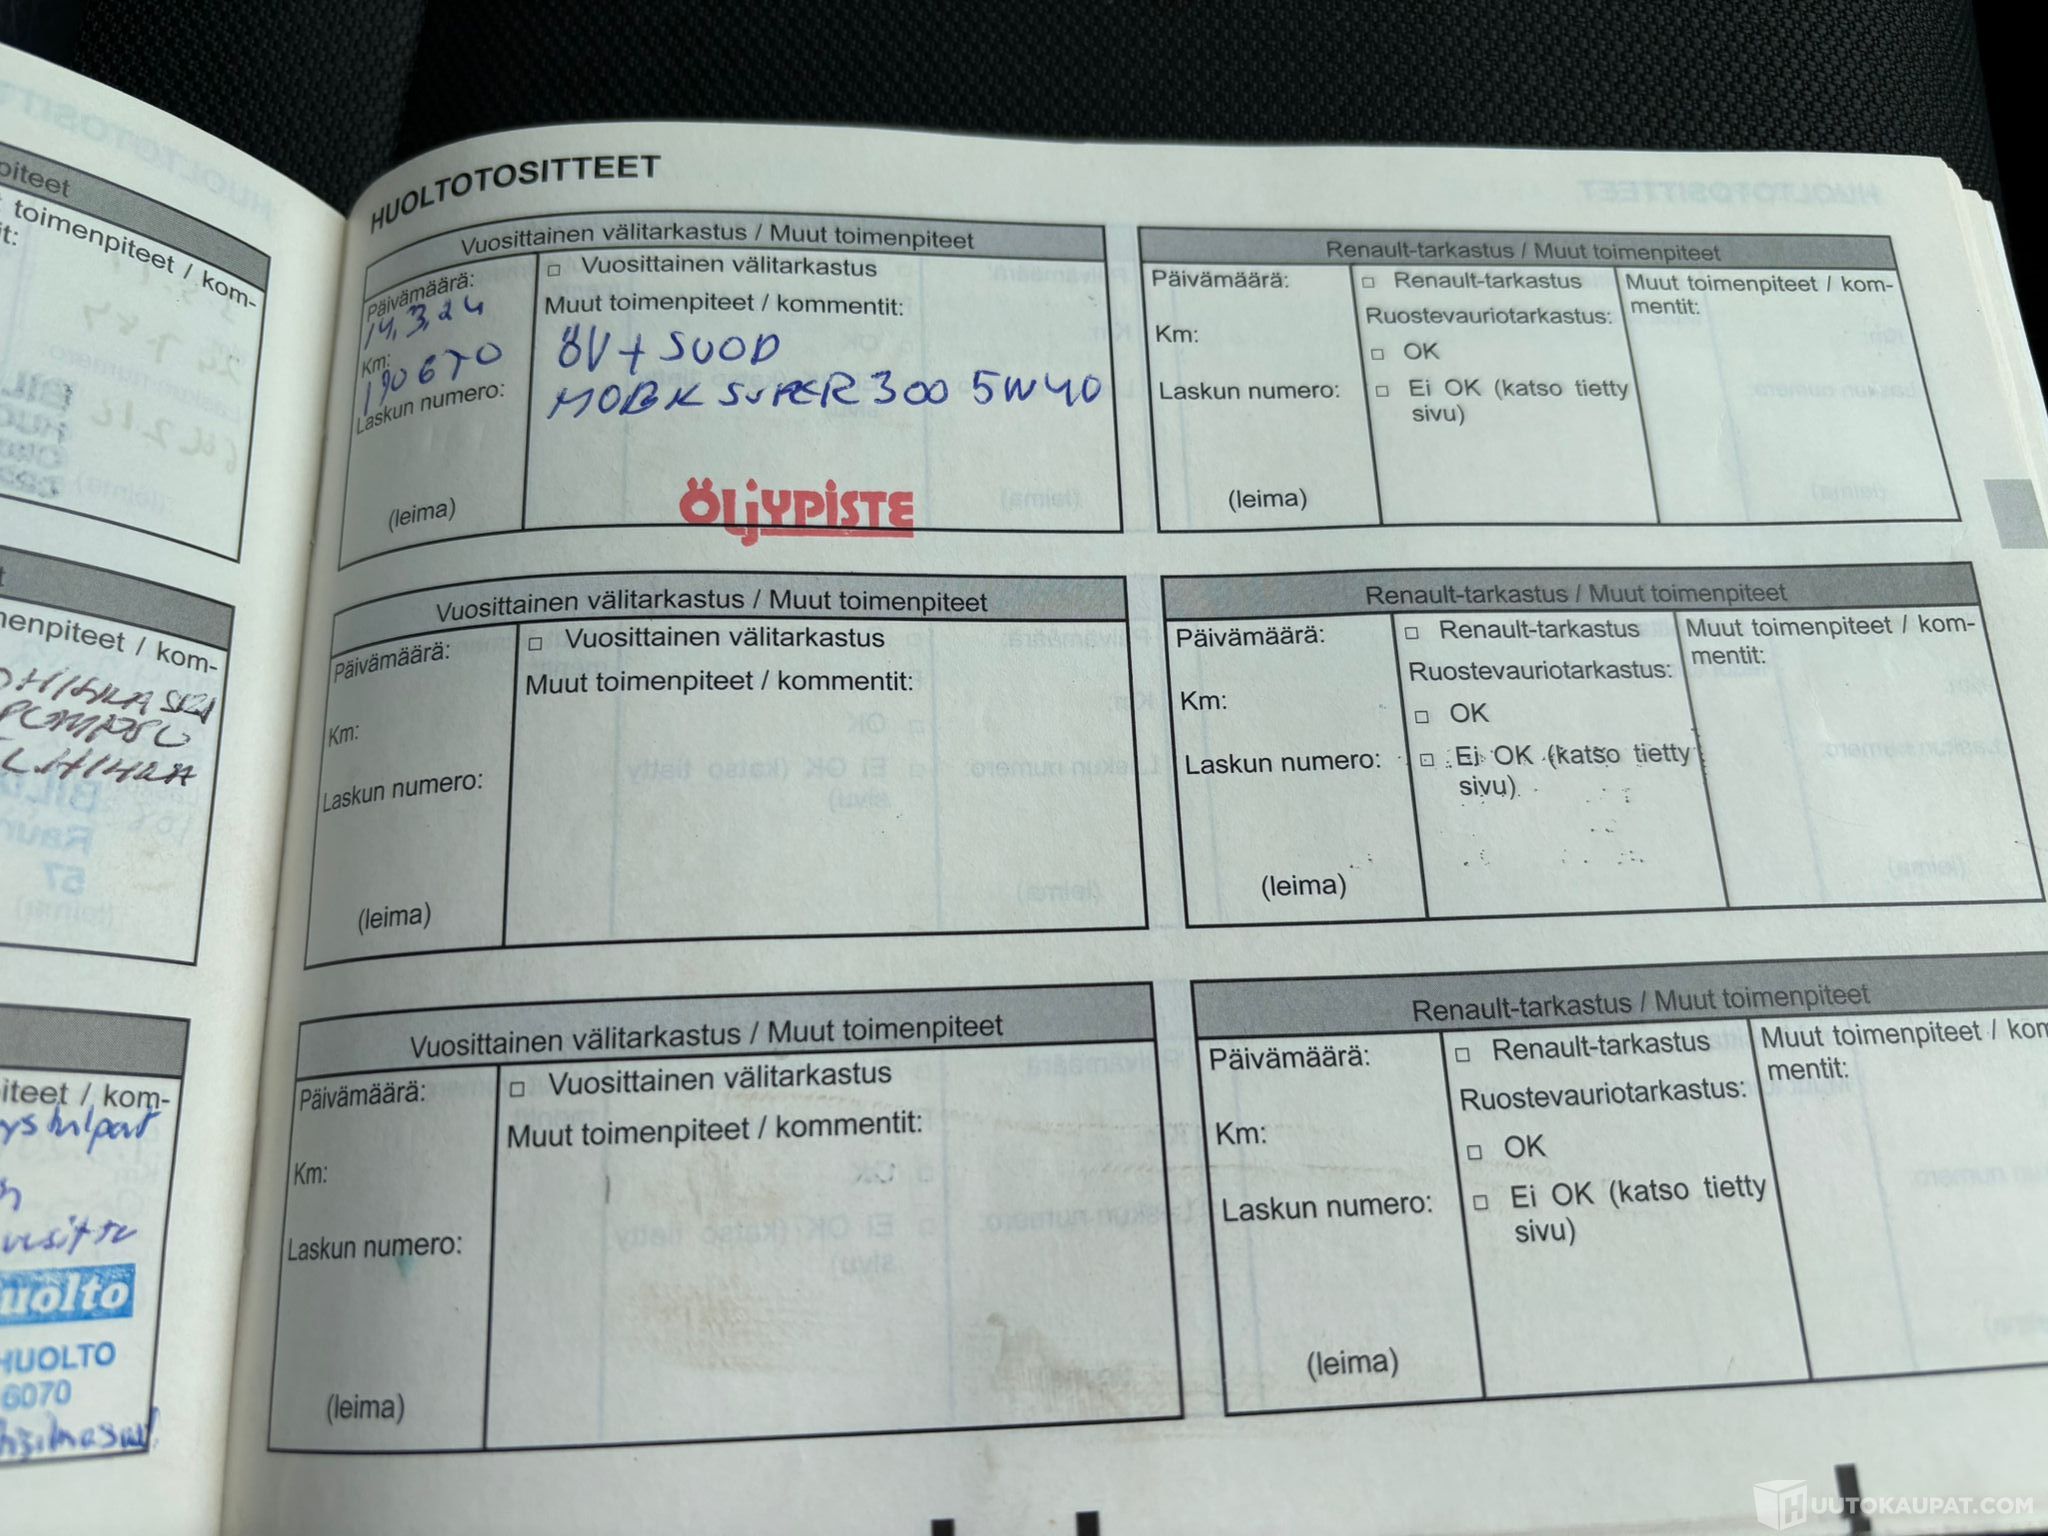 piteet
toimenpiteet / kom-
it:
menpiteet / kom-
piteet / kom-
HUOLTO
6070
HUOLTOTOSITTEET
Vuosittainen välitarkastus / Muut toimenpiteet
Päivämäärä:
14.3.24
Km:
190670
Laskun numero:
(leima)
□ Vuosittainen välitarkastus
Muut toimenpiteet / kommentit:
ÖV + SUOD
SUPER 300 5W40
ÖLjYPiSTE
Renault-tarkastus / Muut toimenpiteet
Päivämäärä:
Km:
Laskun numero:
(leima)
□ Renault-tarkastus
Ruostevauriotarkastus:
□ OK
□ Ei OK (katso tietty
sivu)
Muut toimenpiteet / kom-
mentit:
Vuosittainen välitarkastus / Muut toimenpiteet
Päivämäärä:
Km:
Laskun numero:
(leima)
□ Vuosittainen välitarkastus
Muut toimenpiteet / kommentit:
Renault-tarkastus / Muut toimenpiteet
Päivämäärä:
Km:
Laskun numero:
(leima)
□ Renault-tarkastus
Ruostevauriotarkastus:
□ OK
□ Ei OK (katso tietty
sivu)
Muut toimenpiteet / kom-
mentit:
Vuosittainen välitarkastus / Muut toimenpiteet
Päivämäärä:
Km:
Laskun numero:
(leima)
□ Vuosittainen välitarkastus
Muut toimenpiteet / kommentit:
Renault-tarkastus / Muut toimenpiteet
Päivämäärä:
Km:
Laskun numero:
(leima)
□ Renault-tarkastus
Ruostevauriotarkastus:
□ OK
□ Ei OK (katso tietty
sivu)
Muut toimenpiteet / kom
mentit:
HUUTOKAUPAT.COM